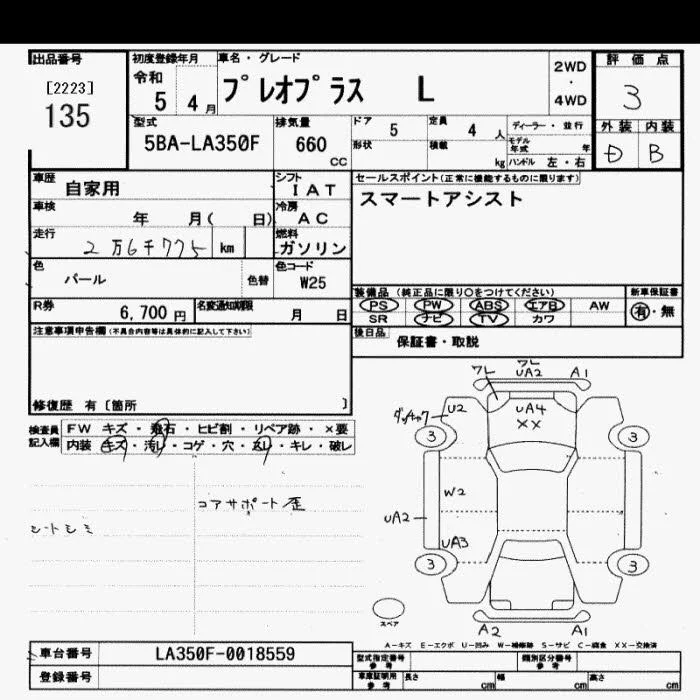 出品番号
[2223]
135
初度登録年月
令和
5 4 月
車名・グレード
プレオプラス L
2WD
・
4WD
評価点
3
外装 内装
D B
型式
5BA-LA350F
排気量
660
CC
ドア 5
定員 4 人
ディーラー・並行
形状
積載 kg
モデル年式 年
ハンドル 左・右
車歴 自家用
シフト IAT
車検 年 月( 日)
冷房 AC
走行 2万6千775 km
燃料 ガソリン
色 パール 色替
色コード W25
R券 6,700 円
名変通知期限 月 日
セールスポイント(正常に機能するものに限ります)
スマートアシスト
装備品(純正品に限り○をつけてください)
新車保証書
PS PW ABS エアB AW
SR ナビ TV カワ
有・無
後日品 保証書・取説
注意事項申告欄(不具合内容等は具体的に記入して下さい)
修復歴 有〔箇所 〕
検査員記入欄
FW キズ・飛石・ヒビ割・リペア跡・×要
内装 キズ・汚レ・コゲ・穴・スレ・キレ・破レ
コアサポート歪
シートシミ
ワレ
ワレ
UA2
A1
U2
UA4
XX
3
3
W2
UA2
UA3
3
3
スペア
A2
A1
A-キズ E-エクボ U-凹み W-補修跡 S-サビ C-腐食 XX-交換済
車台番号 LA350F-0018559
登録番号
型式指定番号 参考
類別区分番号 参考
車庫証明用 参考
長さ cm
幅 cm
高さ cm